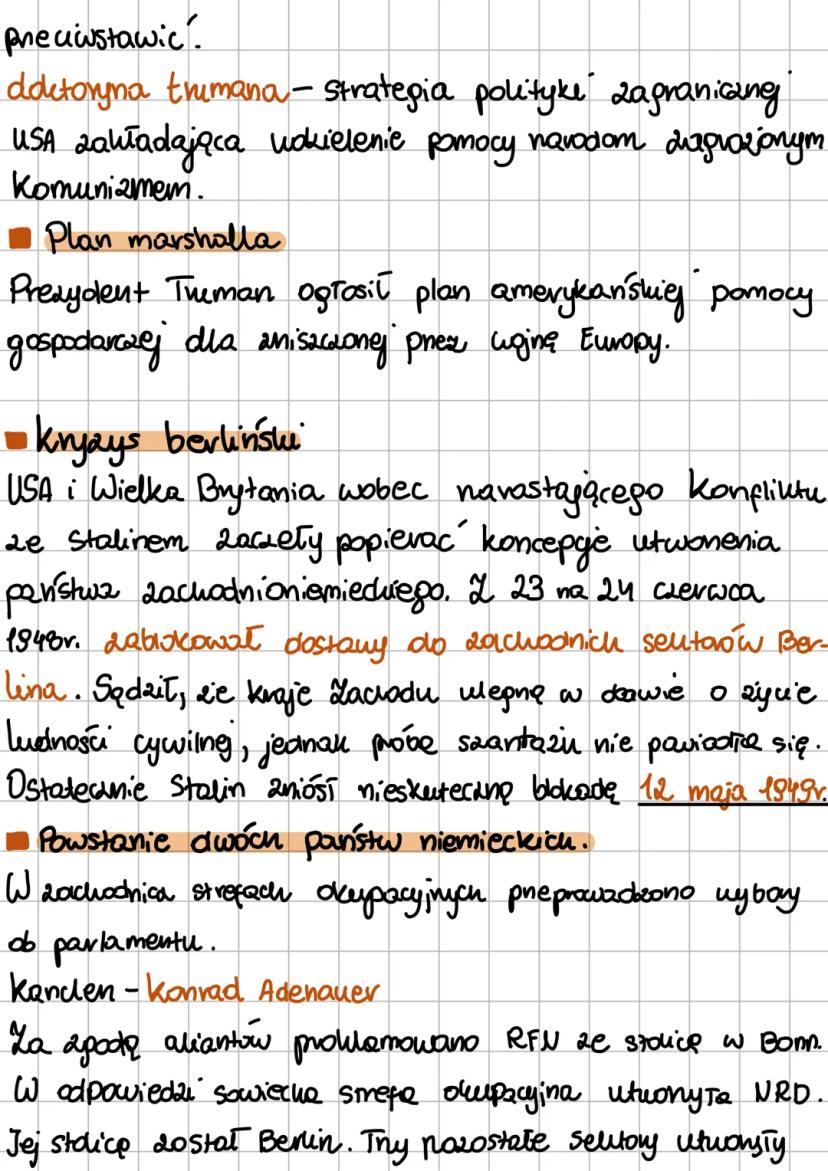 przeciwstawić.
doktoryna trumana – strategia polityki zagranicznej
USA zakładająca udzielenie pomocy narodom zagrożonym
komunizmem.
Plan marshalla
Prezydent Truman ogłosił plan amerykańskiej pomocy
gospodarczej dla zniszczonej przez wojnę Europy.
kryzys berliński
USA i Wielka Brytania wobec narastającego konfliktu
ze Stalinem zaczęły popierać koncepcje utworzenia
państwa zachodnioniemieckiego. Z 23 na 24 czerwca
1948r. zablokował dostawy do zachodnich sektorów Ber-
lina. Sądził, że kraje Zachodu ulegną w obawie o życie
ludności cywilnej, jednak próba szantażu nie powiodła się.
Ostatecznie Stalin zniósł nieskuteczną blokadę 12 maja 1949r.
Powstanie dwóch państw niemieckich.
W zachodnica strefach okupacyjnych przeprowadzono wybory
do parlamentu.
kanclerz – Konrad Adenauer
Za zgodą aliantów proklamowano RFN ze stolicą w Bonn.
W odpowiedzi sowiecka strefa okupacyjna utworzyła NRD.
Jej stolicą został Berlin. Trzy pozostałe sektory utworzyły